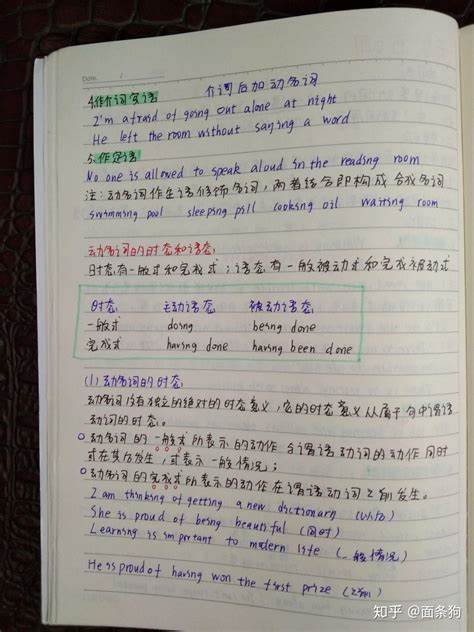 Date
4.作介词宾语 介词后加动名词
I'm afraid of going out alone at night
He left the room without saying a word
5.作定语
No one is allowed to speak aloud in the reading room
注：动名词作定语修饰名词，两者结合即构成合成名词
swimming pool sleeping pill cooking oil waiting room
动名词的时态和语态
时态有一般式和完成式；语态有一般被动式和完成被动式
时态 主动语态 被动语态
一般式 doing being done
完成式 having done having been done
(1)动名词的时态
动名词没有独立的绝对的时态意义，它的时态意义从属于句中谓语
动词的时态。
动名词的一般式所表示的动作与谓语动词的动作同时
或在其后发生，或表示一般情况；
动名词的完成式所表示的动作在谓语动词之前发生。
I am thinking of getting a new dictionary
She is proud of being beautiful (同时)
Learning is important to modern life (一般情况)
He is proud of having won the first prize (之前)
知乎 @面条狗